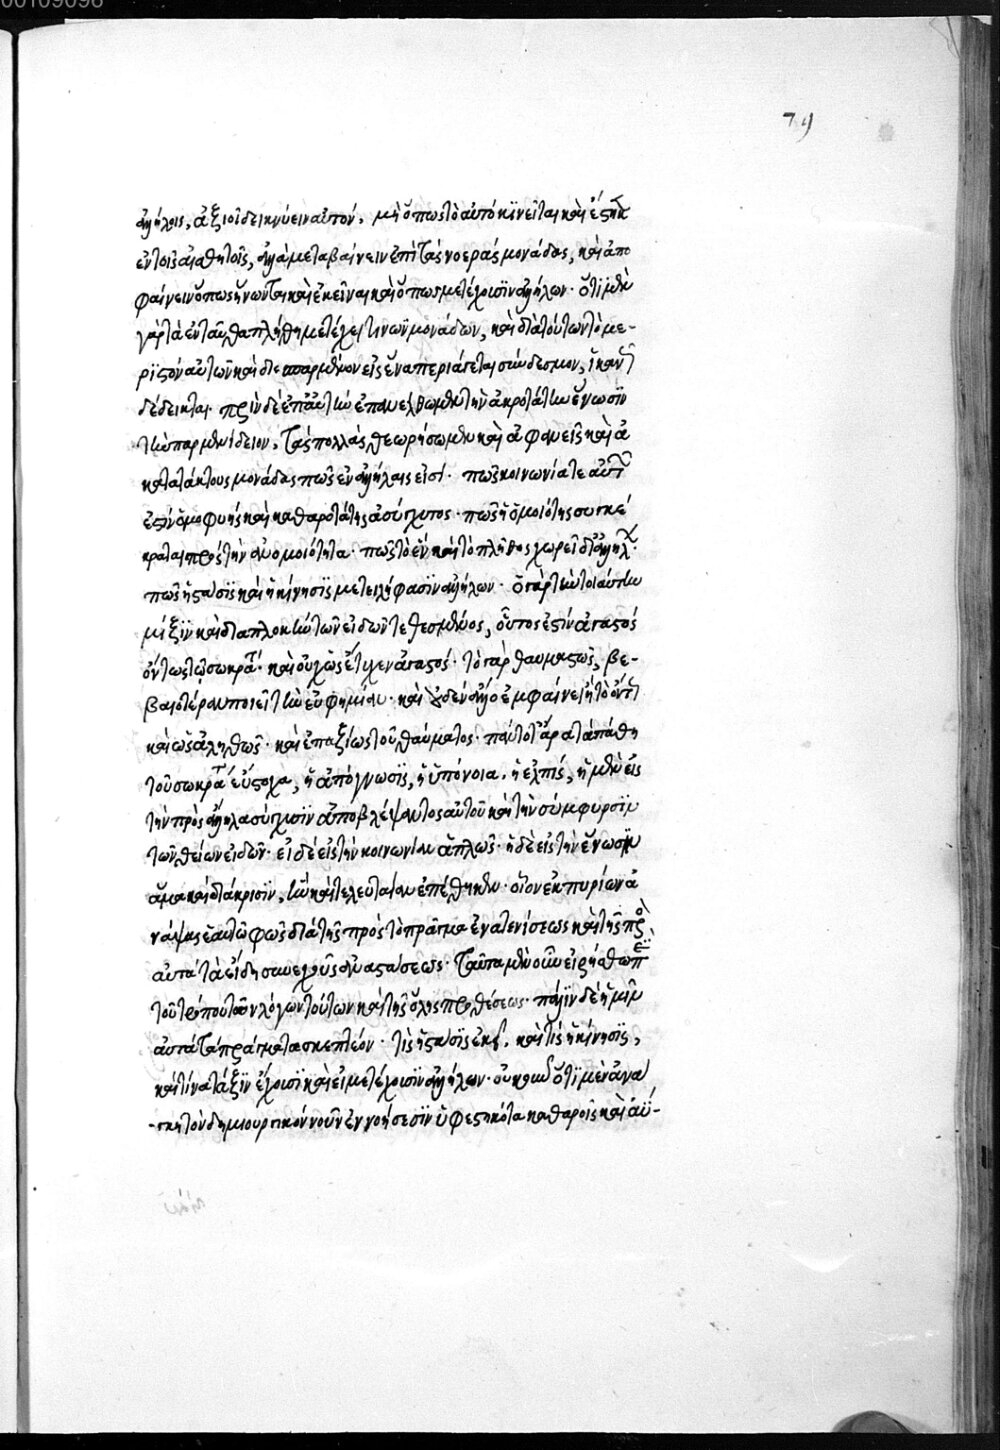 79
ἀλλήλοις, ἀξιοῖ δεικνύειν αὐτόν, μὴ ὅπως τὸ αὐτὸ κινεῖται καὶ ἕστηκεν
ἐν τοῖς αἰσθητοῖς, ἀλλὰ μεταβαίνειν ἐπὶ τὰς νοερὰς μονάδας, καὶ ἀπο
φαίνειν ὅπως ἥνωνται καὶ ἐκεῖναι καὶ ὅπως μετέχουσιν ἀλλήλων. ὅτι μὲν
γὰρ τὰ ἐνταῦθα πλήθη μετέχει τινῶν μονάδων, καὶ διὰ τούτων τὸ με-
ριστὸν αὐτῶν καὶ διεσπαρμένον εἰς ἕνα περιάγεται σύνδεσμον, ἱκανῶς
δέδεικται. πρὶν δὲ ἐπ' αὐτὴν ἐπανέλθωμεν τὴν ἀκροτάτην ἕνωσιν
τὴν παρμενίδειον, τὰς πολλὰς θεωρήσωμεν καὶ ἀφανεῖς καὶ ἀ
κατατάκτους μονάδας πῶς ἐν ἀλλήλαις εἰσί. πῶς κοινωνία τε αὐτῶν
ἐστὶν ὁμοφυὴς καὶ καθαρότης ἀσύγχυτος. πῶς ἡ ὁμοιότης συγκέ
κραται πρὸς τὴν ἀνομοιότητα. πῶς τὸ ἓν καὶ τὸ πλῆθος χωρεῖ δι' ἀλλήλων.
πῶς ἡ στάσις καὶ ἡ κίνησις μετειλήφασιν ἀλλήλων. ὁ γὰρ τὴν τοιαύτην
μίξιν καὶ διαπλοκὴν τῶν εἰδῶν τεθεσμένος, οὗτός ἐστιν ἀγαστός
ὄντως τῷ σωκράτει. καὶ οὐχ ὡς ἔτυχεν ἀγαστός. τὸ γὰρ θαυμαστῶς, βε-
βαιοτέραν ποιεῖ τὴν εὐφημίαν. καὶ οὐδὲν ἄλλο ἐμφαίνει ἢ τὸ ὄντως
καὶ ὡς ἀληθῶς. καὶ ἐπαξίως τοῦ θαύματος. πάντοτ' ἄρα τὰ πάθη
τοῦ σωκράτους εὔστοχα, ἢ ἀπόγνωσις, ἢ ὑπόνοια, ἢ ἐλπίς, ἡ μὲν εἰς
τὴν πρὸς ἄλληλα σύγχυσιν ἀποβλέψαντος αὐτοῦ καὶ τὴν σύμφυρσιν
τῶν θείων εἰδῶν. εἰ δὲ εἰς τὴν κοινωνίαν ἁπλῶς. ἡ δὲ εἰς τὴν ἕνωσιν
ἅμα καὶ διάκρισιν, ἣν καὶ τελευταίαν ἐπέθηκεν. οἷον ἐκ πυρίων ἀ
νάψας ἑαυτῷ φῶς διὰ τῆς πρὸς τὸ πρᾶγμα ἐνατενίσεως καὶ τῆς πρὸς
αὐτὰ τὰ εἴδη συνεχοῦς ἀναστάσεως. ταῦτα μὲν οὖν εἰρήσθω περὶ
τοῦ τρόπου τῶν λόγων τούτων καὶ τῆς ὅλης προθέσεως. πάλιν δὲ ἡμῖν
αὐτὰ τὰ πράγματα σκεπτέον. τίς ἡ στάσις ἐκεῖ, καὶ τίς ἡ κίνησις,
καὶ τίνα τάξιν ἔχουσι καὶ εἰ μετέχουσιν ἀλλήλων. οὐκοῦν ὅτι μὲν ἀνά
γκη τὸν δημιουργικὸν νοῦν ἐν νοήσεσιν ὑφεστηκότα καθαροῖς καὶ ἀΰ-